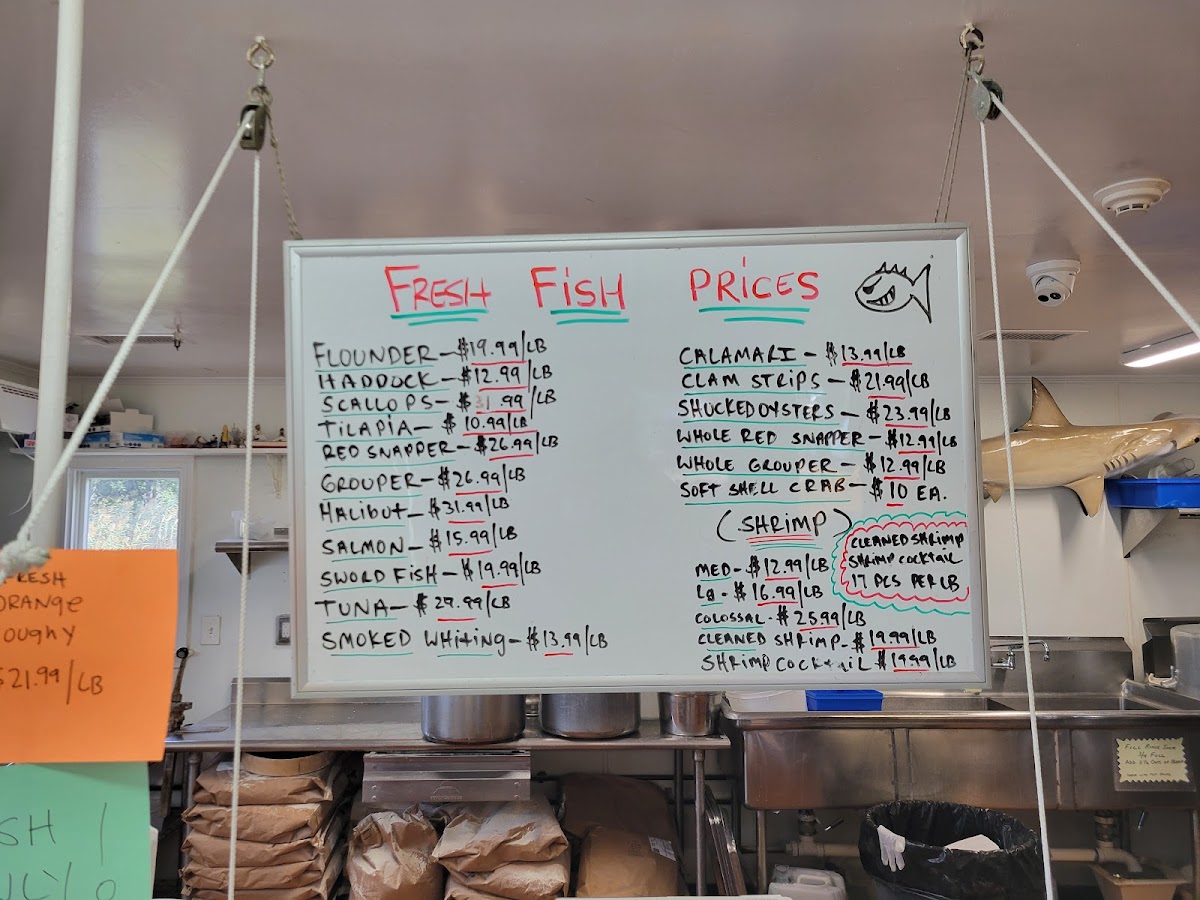 FRESH FISH PRICES
FLOUNDER - $19.99/LB
HADDOCK - $12.99/LB
SCALLOPS - $31.99/LB
TILAPIA - $10.99/LB
RED SNAPPER - $26.99/LB
GROUPER - $26.99/LB
HALIBUT - $31.99/LB
SALMON - $15.99/LB
SWORD FISH - $19.99/LB
TUNA - $29.99/LB
SMOKED WHITING - $13.99/LB
CALAMARI - $13.99/LB
CLAM STRIPS - $21.99/LB
SHUCKED OYSTERS - $23.99/LB
WHOLE RED SNAPPER - $12.99/LB
WHOLE GROUPER - $12.99/LB
SOFT SHELL CRAB - $10 EA.
(SHRIMP)
MED - $12.99/LB
LG - $16.99/LB
COLOSSAL - $25.99/LB
CLEANED SHRIMP - $19.99/LB
SHRIMP COCKTAIL $19.99/LB
CLEANED SHRIMP
SHRIMP COCKTAIL
17 PCS PER LB
FRESH
ORANGE
OUGHY
$21.99/LB
SH